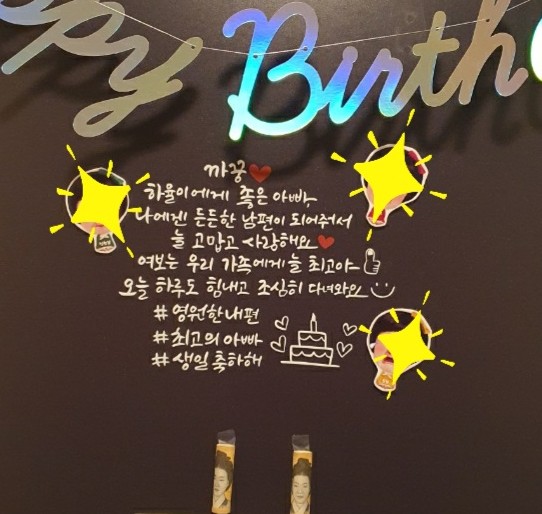 ppy Birth
까꿍
하율이에게 좋은 아빠
나에겐 든든한 남편이 되어줘서
늘 고맙고 사랑해요
여보는 우리 가족에게 늘 최고야~
오늘 하루도 힘내고 조심히 다녀와요
#영원한내편
#최고의 아빠
#생일축하해